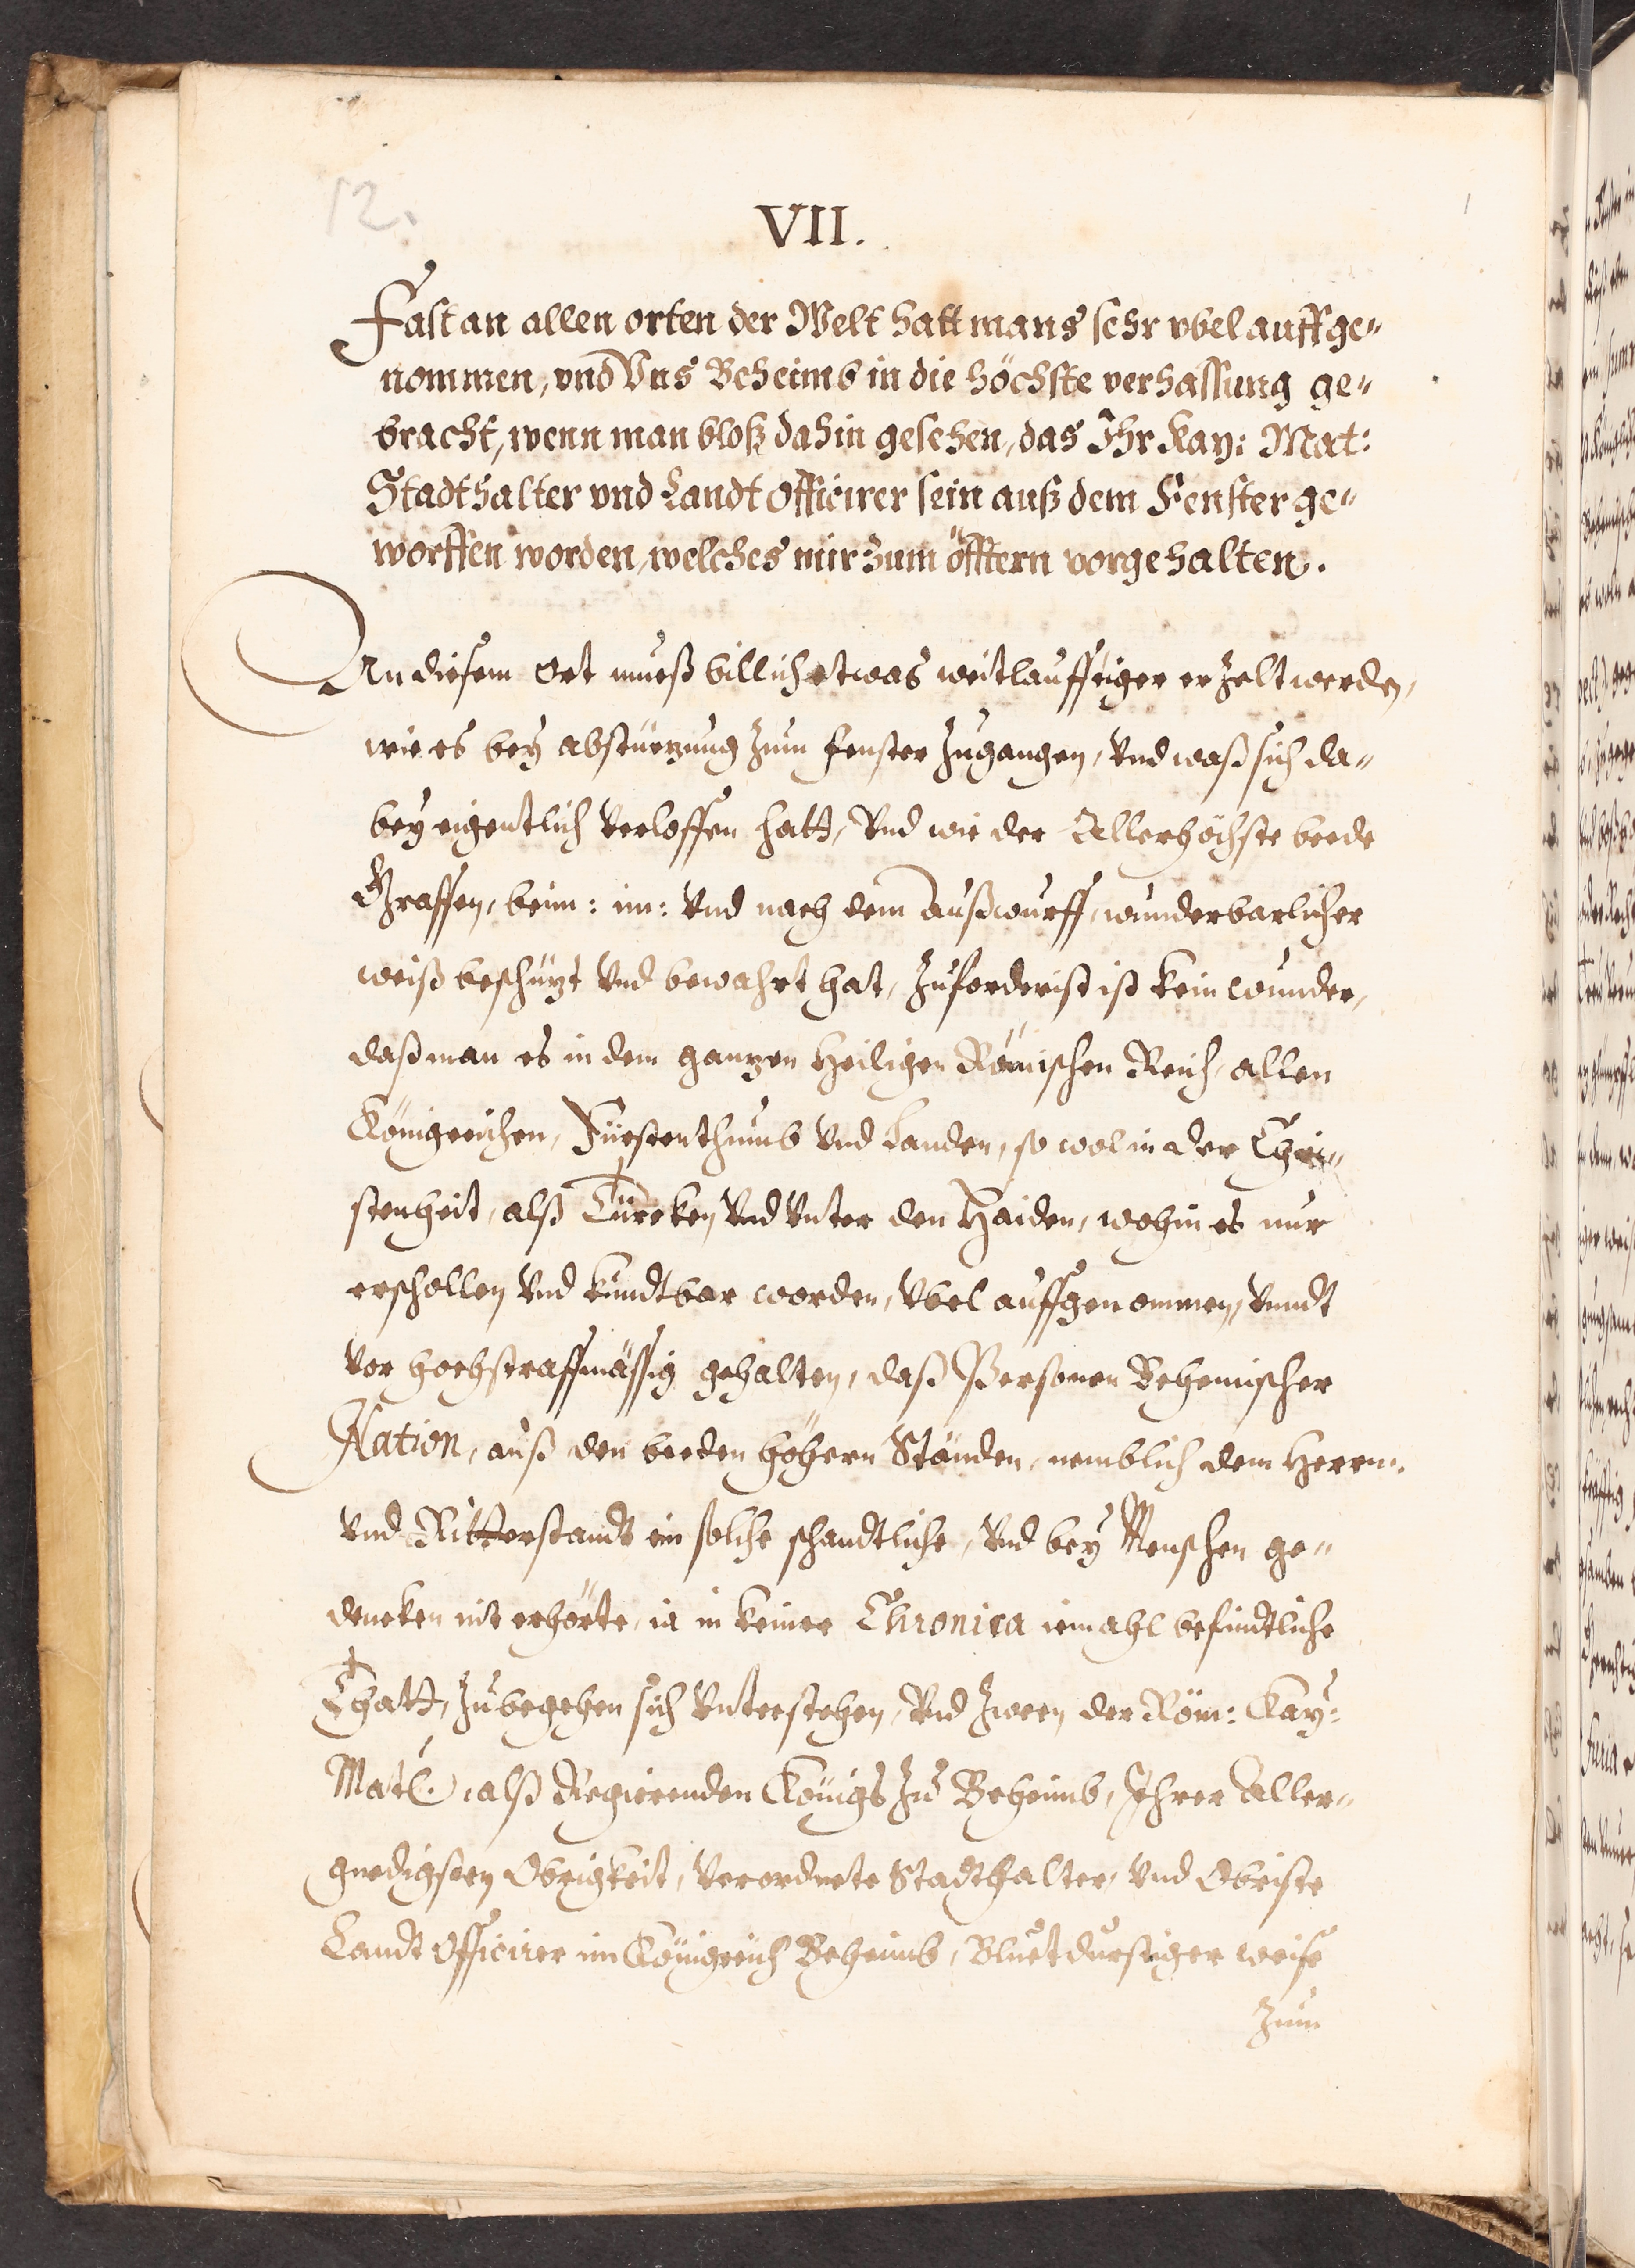 12.
VII.
Fast an allen orten der Welt hatt mans sehr vbel auffge-
nommen, vnd Vns Beheimb in die höchste verhassung ge-
bracht, wenn man bloß dahin gesehen, das Ihr Kay: Mat:
Stadthalter vnd Landt Officirer sein auß dem Fenster ge-
worffen worden, welches mir zum öfftern vorgehalten.
An diesem Ort mueß billich etwas weitlauffiger erzelt werden,
wie es bey abstürtzung zum fenster zugangen, Vnd waß sich da-
bey eigentlich verloffen hatt, Vnd wie der Allerhöchste beede
Graffen, beim: im: Vnd nach dem Außwurff, wunderbarlicher
weiß beschützt Vnd bewahrt hat, Zuforderist ist kein wunder,
daß man es in dem gantzen Heiligen Römischen Reich, allen
Königreichen, Fürstenthumb Vnd Landen, so wol in der Chri-
stenheit, alß Türcken, Vnd Vnter den Haiden, wohin es nur
erschollen Vnd kundtbar worden, Vbel auffgenommen, Vnndt
vor hochstraffmässig gehalten, daß Personen Behemischer
Nation, auß den beeden höhern Ständen, nemblich dem Herrn-
Vnd Ritterstandt ein solche schandtliche, Vnd bey Menschen ge-
dencken nit erhörte, ia in keiner Chronica iemahl befindtliche
Thatt, zubegehen sich Vnterstehen, Vnd zween der Röm: Kay:
Matt. alß Regierenden Königs zu Beheimb, Ihrer Aller-
gnedigsten Obrigkeit, Verordnete Stadthalter, Vnd Obriste
Landt Officirer im Königreich Beheimb, Bluetdurstiger weise
zum